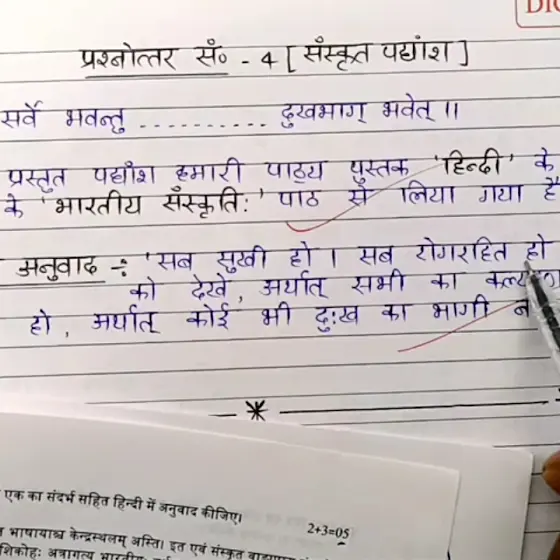 DI
प्रश्नोत्तर सं० - 4 [ संस्कृत पद्यांश ]
सर्वे भवन्तु .......... दुखभाग् भवेत् ।।
प्रस्तुत पद्यांश हमारी पाठ्य पुस्तक 'हिन्दी' के
के 'भारतीय संस्कृति:' पाठ से लिया गया है
अनुवाद ÷ 'सब सुखी हो । सब रोगरहित हो
को देखे, अर्थात् सभी का कल्याण
हो, अर्थात् कोई भी दुःख का भागी न
एक का संदर्भ सहित हिन्दी में अनुवाद कीजिए।
2+3=05
भाषायाश्च केन्द्रस्थलम् अस्ति। इत एवं संस्कृत
अत्रागत्य